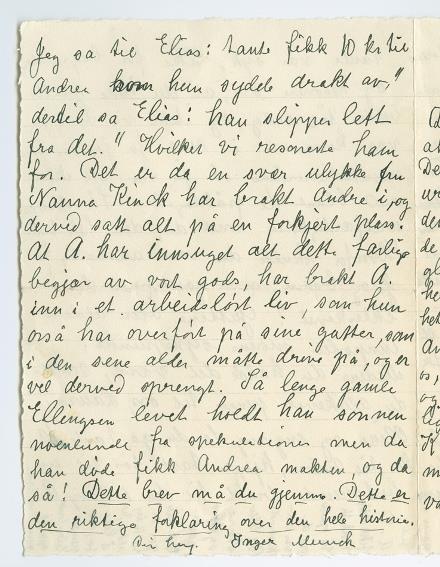 Jeg sa til Elias: tante fikk 10 kr til
Andrea hun sydde drakt av,"
dertil sa Elias: han slipper lett
fra det." Hvilket vi resonerte ham
for. Det er da en svær ulykke fru
Nanna Kinck har brakt Andre i, og
derved satt alt på en forkjert plass.
At A. har innsuget alt dette farlige
begjær av vort gods, har brakt A.
inn i et arbeidsløst liv, som hun
også har overført på sine gutter, som
i den sene alder måtte drive på, og er
vel derved sprengt. Så lenge gamle
Ellingsen levet holdt han sønnen
noenlunde fra spekulationer men da
han døde fikk Andrea makten, og da
så! Dette brev må du gjemme. Dette er
den riktige forklaring over den hele historie.
Din heng. Inger Munch